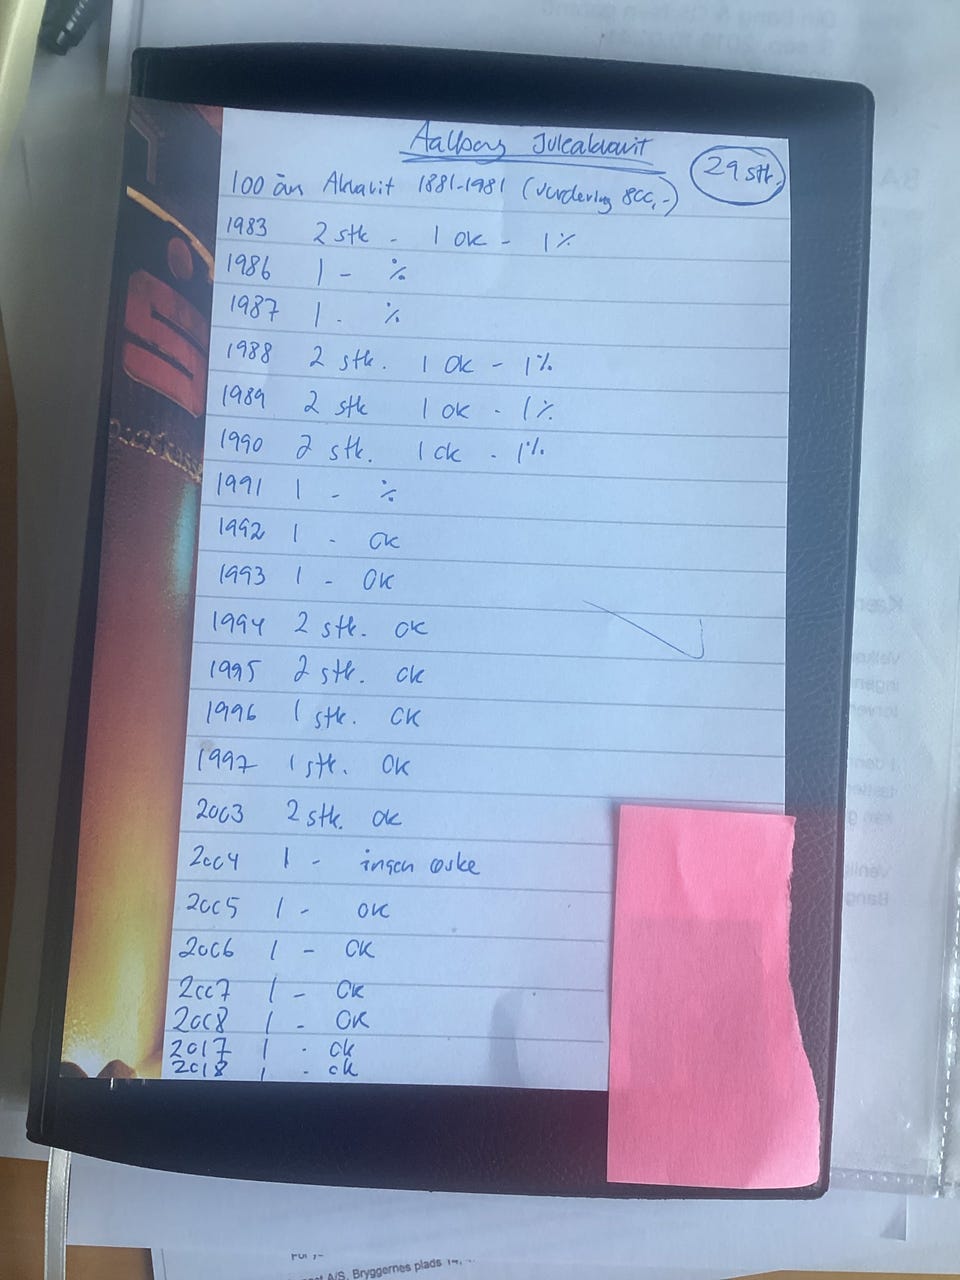 Aalborg Juleakvavit
29 stk.
100 års Akvavit 1881-1981 (Vurdering 800,-)
1983 2 stk - 1 ok - 1 %
1986 1 - %
1987 1 - %
1988 2 stk. 1 ok - 1 %
1989 2 stk 1 ok - 1 %
1990 2 stk. 1 ok - 1 %
1991 1 - %
1992 1 - OK
1993 1 - OK
1994 2 stk. OK
1995 2 stk. OK
1996 1 stk. OK
1997 1 stk. OK
2003 2 stk. OK
2004 1 - ingen æske
2005 1 - OK
2006 1 - OK
2007 1 - OK
2008 1 - OK
2017 1 - ok
2018 1 - ok
A/S, Bryggernes plads